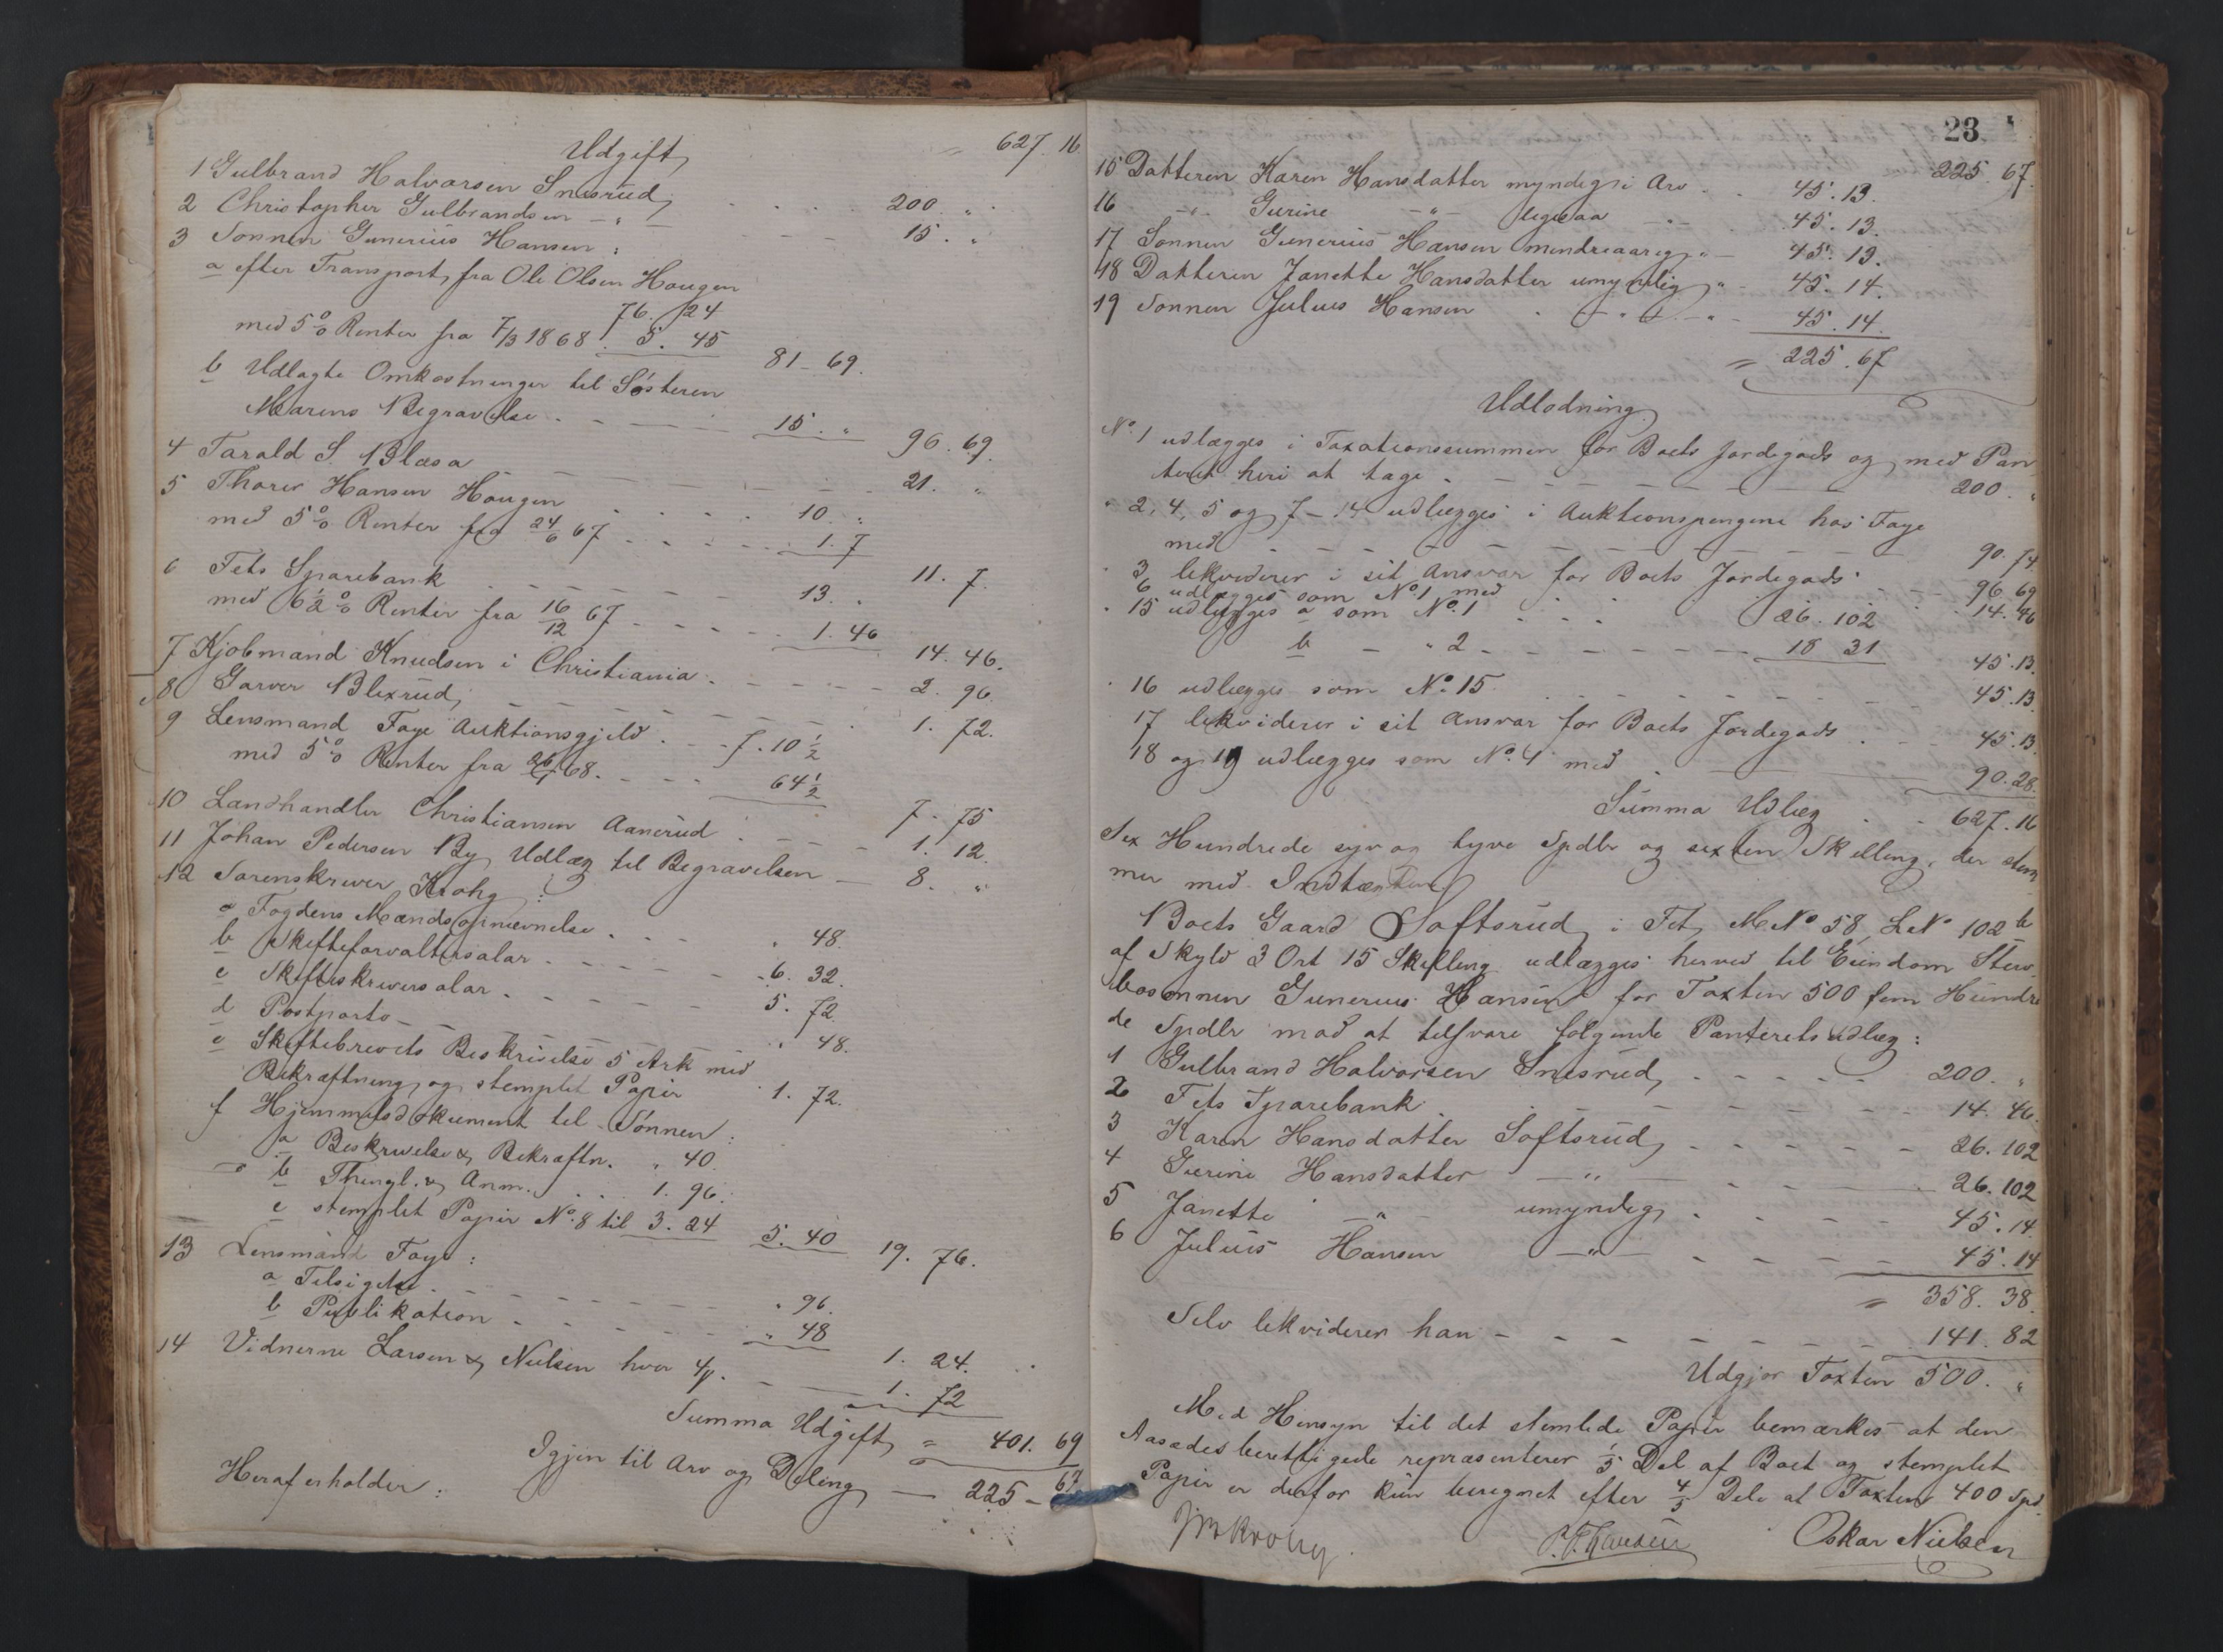 627. 16
Udgift
1 Gulbrand Halvorsen Snesrud . . . . 200. "
2 Christopher Gulbrandsen - " - - - 15. "
3 Sønnen Gunerius Hansen :
a efter Transport fra Ole Olsen Haugen
76. 24
med 5 % Renter fra 7/3 1868 . 5. 45
81 - 69.
b Udlagte Omkostninger til Søsteren
Marens Begravelse . - - - - 15. "
96. 69.
4 Tarald S. Blæsa - - - - - 21. "
5 Thorer Hansen Haugen . . . 10. "
med 5 % Renter fra 24/6 67 . . . . . 1. 7
11. 7.
6 Fets Sparebank . - - - - 13. "
med 6 1/2 % Renter fra 16/12 67 - - - - 1. 46
14. 46.
7 Kjøbmand Knudsen i Christiania . - - - - 2. 96
8 Garver Blixrud, - - - - - - 1. 72.
9 Lensmand Faye Auktionsgjeld . - - 7. 10 1/2
med 5 % Renter fra 26/1 68. - - - 64 1/2
7. 75
10 Landhandler Christiansen Aanerud . - - - 1. 12.
11 Johan Pedersen By, Udlæg til Begravelsen - 8. "
12 Sorenskriver Krohg :
a Fogdens Mændsopnævnelse . . . " 48.
b Skifteforvaltersalar . - - - - - 6. 32.
c Skifteskriversalar . - - - - 5. 72.
d Postporto - - - - - " 48.
e Skiftebrevets Beskrivelse 5 Ark med
Bekræftning, og stemplet Papir 1. 72.
f Hjemmelsdokument til Sønnen :
a Beskrivelse & Bekræftn. " 40.
b Thingl. & Anm. . . . 1. 96.
c stemplet Papir No. 8 til 3. 24
5. 40
19. 76.
13 Lensmand Faye :
a Tilsigelse . - - - - - " 96.
b Publikation . - - - - " 48
1. 24.
14 Vidnerne Larsen & Nielsen hver 4/. - - - 1. 72
Summa Udgift = 401. 69
Igjen til Arv og Deling - 225 - 67
Heraf erholder :
23
225 67.
15 Datteren Karen Hansdatter myndig i Arv . . 45. 13.
16 - " - Gurine - " - ligesaa - . - 45. 13.
17 Sønnen Gunerius Hansen mindreaarig " - 45. 13.
18 Datteren Janette Hansdatter umyndig " - 45. 14.
19 Sønnen Julius Hansen . - " - . - " - 45. 14.
= 225. 67
Udlodning
No. 1 udlægges i Taxationssummen for Boets Jordegods og med Pan
teret heri at tage . - - - - - - 200. "
" 2, 4, 5 og 7 - 14 udlægges i Auktionspengene hos Faye
med - - - - - - - 90. 74
" 3 likviderer i sit Ansvar for Boets Jordegods . - - 96. 69
6 udlægges som No. 1 med . . . 14. 46
" 15 udlægges a som No. 1 . . . 26. 102
b - " 2 - - - - - 18 31
45. 13.
" 16 udlægges som No. 15 . - - - - - 45. 13.
17 likviderer i sit Ansvar for Boets Jordegods . - - 45. 13.
18 og 19 udlægges som No. 1 med . - - - 90. 28.
Summa Udlæg . . 627. 16
Sex Hundrede syv og tyve Spdlr og sexten Skilling, der stem
mer med Indtægten.
Boets Gaard Softsrud, i Fet, M. No 58, L. No 102 b
af Skyld 3 Ort 15 Skilling udlægges herved til Eiendom Sterv-
bosønnen Gunerius Hansen for Taxten 500 fem Hundre
de Spdlr mod at tilsvare følgende Panterets udlæg :
1 Gulbrand Halvorsen Snesrud, - - - - - 200. "
2 Fets Sparebank . - - - - - - 14. 46.
3 Karen Hansdatter Softsrud, - - - - - 26. 102
4 Gurine Hansdatter - " - - - - 26. 102
5 Janette - " - umyndig, . - - - 45. 14.
6 Julius Hansen - " - - - - - 45. 14
= 358. 38.
Selv likviderer han - - - - - - 141. 82
Udgjør Taxten 500. "
Med Hensyn til det stemlede Papir bemærkes at den
Aasædesberettigede repræsenterer 1/5 Del af Boet og stemplet
Papir er derfor kun beregnet efter 4/5 Dele af Taxten 400 Spd.
Krohg. Oskar Nielsen